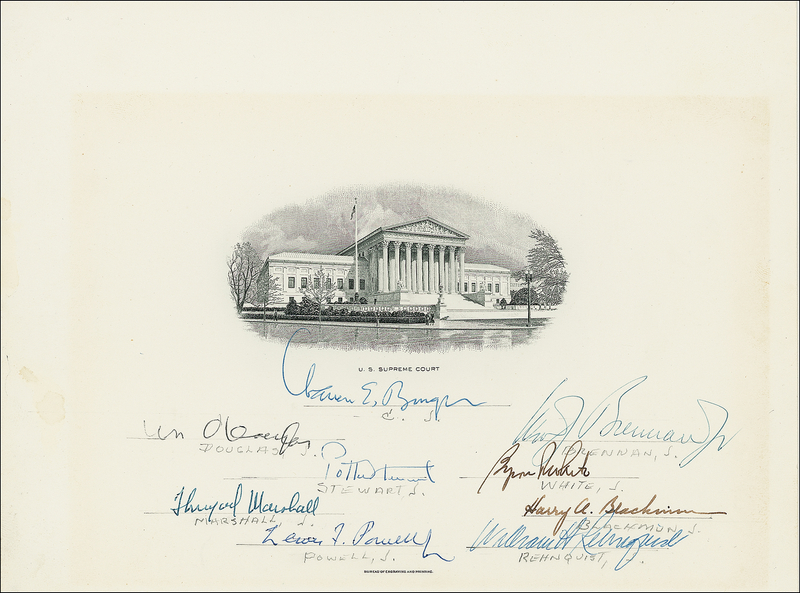 U. S. SUPREME COURT
Warren E. Burger
C. J.
Wm O Douglas
DOUGLAS J.
Wm J Brennan Jr
BRENNAN, J.
Potter Stewart
STEWART, J.
Byron White
WHITE, J.
Thurgood Marshall
MARSHALL, J.
Harry A. Blackmun
BLACKMUN J.
Lewis F. Powell Jr
POWELL, J.
William H Rehnquist
REHNQUIST, J.
BUREAU OF ENGRAVING AND PRINTING.